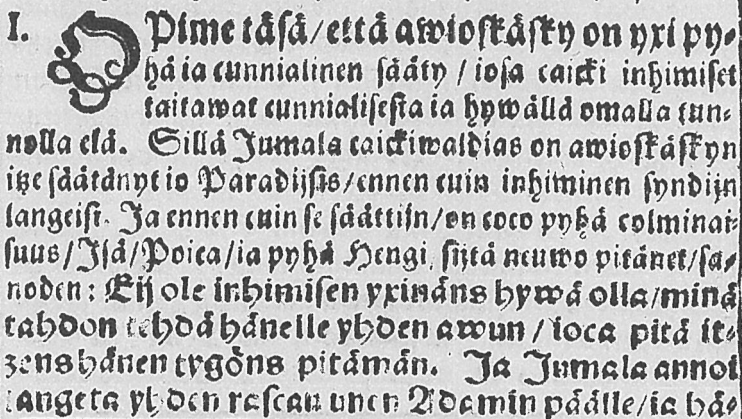 I. OPime täsä/että awioskäsky on yxi py-
hä ia cunnialinen sääty / iosa caicki inhimiset
taitawat cunnialisesta ia hywällä omalla tun-
nolla elä. Sillä Jumala caickiwaldias on awioskäskyn
itze säätänyt io Paradijsis/ennen cuin inhiminen syndijn
langeisi. Ja ennen cuin se säättijn/on coco pyhä colminai-
suus/Jsä/Poica/ia pyhä Hengi, sijtä neuwo pitänet/sa-
noden: Eij ole inhimisen yxinäns hywä olla/minä
tahdon tehdä hänelle yhden awun / ioca pitä it-
zens hänen tygöns pitämän. Ja Jumala annoi
langeta yhden rascan unen Adamin päälle/ia hä-